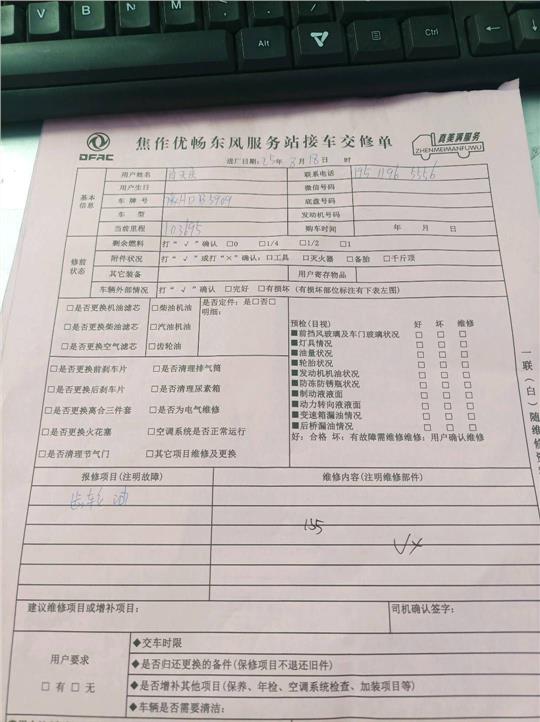 V B N M
Alt Ctrl
DFAC
焦作优畅东风服务站接车交修单
真美满服务
ZHENMEIMANFUWU
进厂日期:25年3月18日 时
基本信息
用户姓名 联系电话 195 1196 5556
用户生日 微信号码
车牌号 底盘号码
车型 发动机号码
当前里程 103695 购车时间 年 月 日
修前状态
剩余燃料 打“√”确认 □0 □1/4 □1/2 □1
附件状况 打“√”或打“×”确认: □工具 □灭火器 □备胎 □千斤顶
其它装备 用户寄存物品
车辆外部情况 打“√”确认 □完好 □有损坏(有损坏部位标注有下表左图)
□是否更换机油滤芯 □柴油机油 是否定件: 是□否□
明细:
□是否更换柴油滤芯 □汽油机油
□是否更换空气滤芯 □齿轮油
□是否更换前刹车片 □是否清理排气筒
□是否更换后刹车片 □是否清理尿素箱
□是否更换离合三件套 □是否为电气维修
□是否更换火花塞 □空调系统是否正常运行
□是否清理节气门 □其它项目维修及更换
预检(目视) 好 坏 维修
■前挡风玻璃及车门玻璃状况 □ □ □
■灯具情况 □ □ □
■油量状况 □ □ □
■轮胎状况 □ □ □
■发动机机油状况 □ □ □
■防冻防锈瓶状况 □ □ □
■制动液液面 □ □ □
■动力转向液液面 □ □ □
■变速箱漏油情况 □ □ □
■后桥漏油情况 □ □ □
好: 合格 坏: 有故障需维修维修: 用户确认维修
一联(白)随维修
报修项目(注明故障) 维修内容(注明维修部件)
齿轮油
135
建议维修项目或增补项目: 司机确认签字:
用户要求
□有□无
◆交车时限
◆是否归还更换的备件(保修项目不退还旧件)
◆是否增补其他项目(保养、年检、空调系统检查、加装项目等)
◆车辆是否需要清洁: